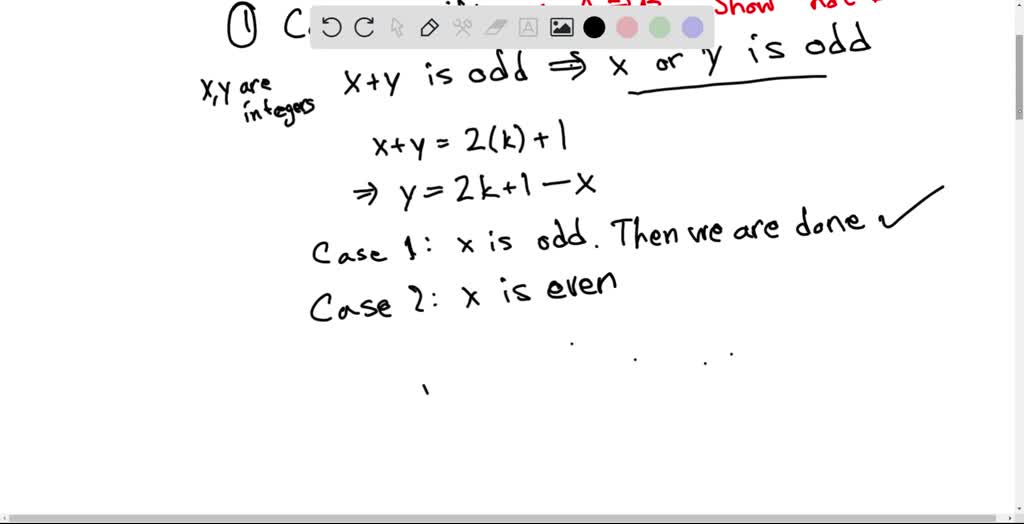 ① C
Show not
x+y is odd ⇒ x or y is odd
x,y are
integers
x+y = 2(k)+1
⇒ y = 2k+1-x
Case 1: x is odd. Then we are done ✓
Case 2: x is even